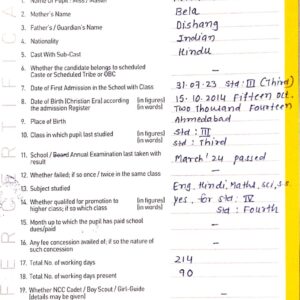 TRANSFER CERTIFICATE
1. Name of Pupil: Miss / Master
2. Mother's Name Bela
3. Father's / Guardian's Name Dishang
4. Nationality Indian
5. Cast With Sub-Cast Hindu
6. Whether the candidate belongs to scheduled
Caste or Scheduled Tribe or OBC –
7. Date of First Admission in the School with Class 31-07-23 std: III (Third)
8. Date of Birth (Christian Era) according (in figures) 15-10-2014 Fifteen Oct.
the admission Register (in words) Two thousand Fourteen
9. Place of Birth Ahmedabad
10. Class in which pupil last studied (in figures) Std: III
(in words) Std: Third
11. School / Board Annual Examination last taken with
result March' 24 passed
12. Whether failed; if so once / twice in the same class –
13. Subject studied Eng, Hindi, Maths, sci, s.s.
14. Whether qualified for promotion to (in figures) Yes, for std: IV
higher class; if so which class (in words) Std: Fourth
15. Month up to which the pupil has paid school
dues/paid –
16. Any fee concession availed of; if so the nature of
such concession –
17. Total No. of working days 214
18. Total No. of working days present 90
19. Whether NCC Cadet / Boy Scout / Girl-Guide
(details may be given) –